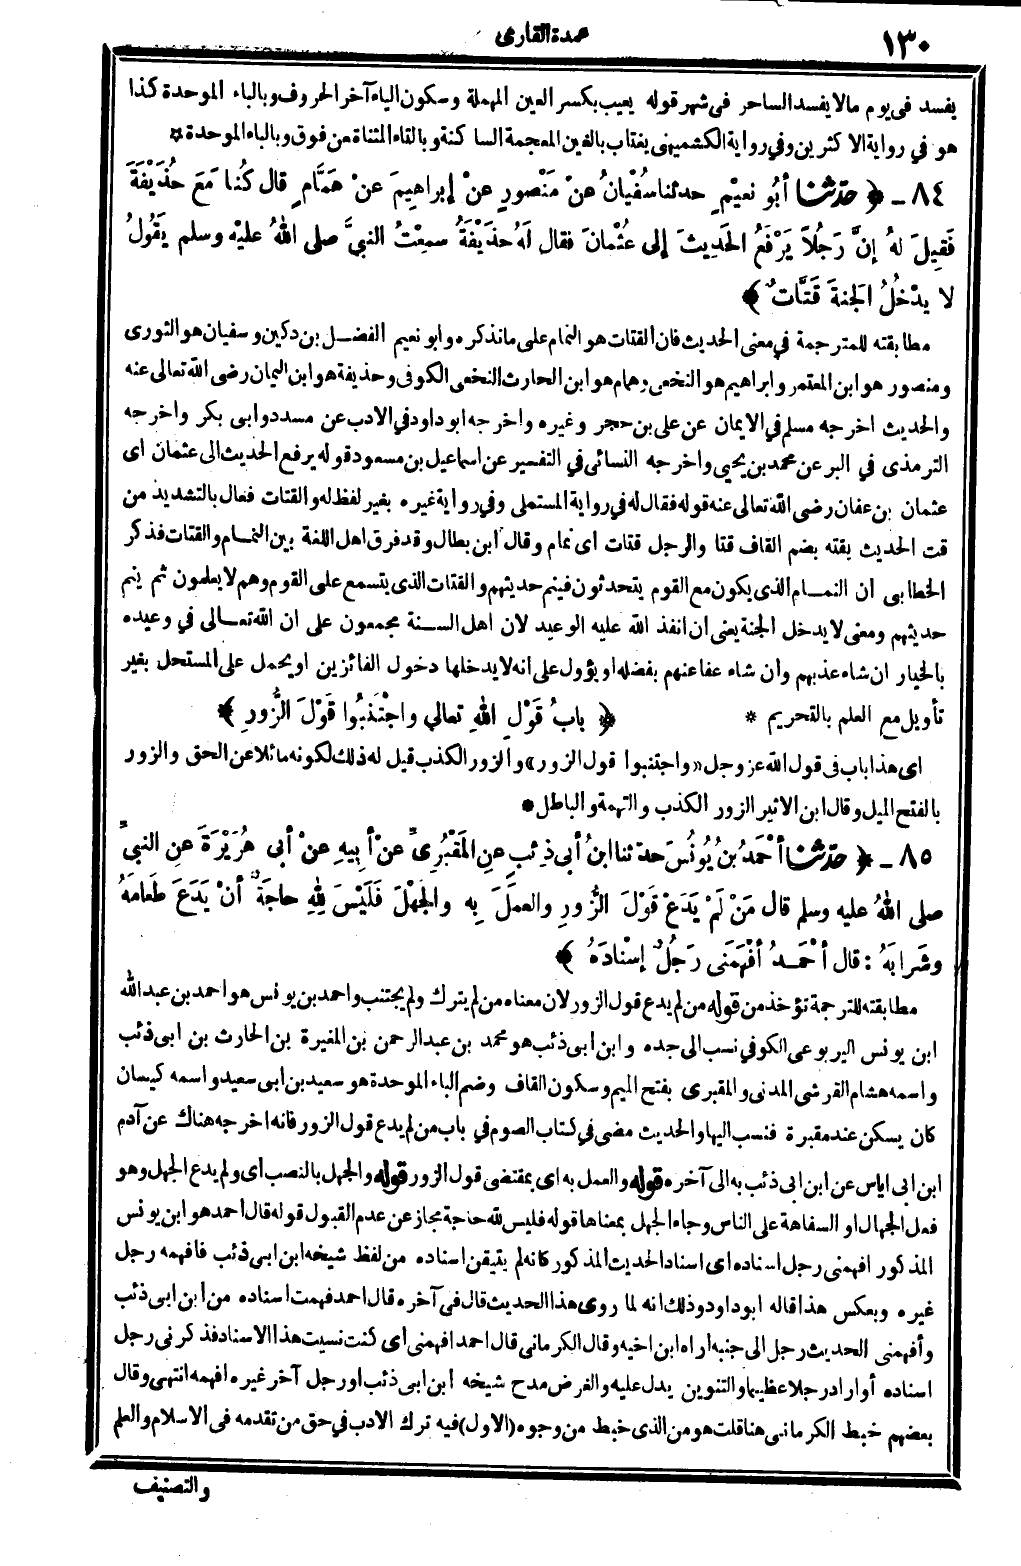 ١٣٠
عمدة القارى
يفسد فى يوم مالا يفسد الساحر فى شهر قوله يعيب بكسر العين المهملة وسكون الياء آخر الحروف وبالباء الموحدة كذا
هو في رواية الاكثرين وفي رواية الكشميهنى يغتاب بالغين المعجمة الساكنة وبالتاء المثناة من فوق وبالباء الموحدة *
٨٤ - ﴿ حَدَّثنا أبُو نعيْمٍ حدثنا سُفْيانُ عنْ مَنْصورٍ عنْ إبراهِيمَ عنْ هَمَّامٍ قال كُنا مَعَ حُذَيْفَةَ
فَقِيلَ لهُ إنَّ رَجُلاً يَرْفَعُ الحَدِيثَ إلى عُثْمانَ فقال لَهُ حُذَيْفَةُ سمِعْتُ النبيَّ صلى اللهُ عليْه وسلم يَقُولُ
لا يدْخلُ الجنةَ قَتَّاتٌ ﴾
مطابقته للترجمة في معنى الحديث فان القتات هو النمام على ما نذكره وابو نعيم الفضل بن دكين وسفيان هو الثورى
ومنصور هو ابن المعتمر وابراهيم هو النخعى وهمام هو ابن الحارث النخعى الكوفى وحذيفة هو ابن اليمان رضى الله تعالى عنه
والحديث اخرجه مسلم في الايمان عن على بن حجر وغيره واخرجه ابو داود في الادب عن مسدد وابى بكر واخرجه
الترمذى في البر عن محمد بن يحيى واخرجه النسائى في التفسير عن اسماعيل بن مسعود قوله يرفع الحديث الى عثمان اى
عثمان بن عفان رضى الله تعالى عنه قوله فقال له في رواية المستملى وفي رواية غيره بغير لفظ له والقتات فعال بالتشديد من
قت الحديث يقته بضم القاف قتا والرجل قتات اى نمام وقال ابن بطال وقد فرق اهل اللغة بين النمام والقتات فذكر
الخطابى ان النمام الذى يكون مع القوم يتحدثون فينم حديثهم والقتات الذى يتسمع على القوم وهم لا يعلمون ثم ينم
حديثهم ومعنى لا يدخل الجنة يعنى ان انفذ الله عليه الوعيد لان اهل السنة مجمعون على ان الله تعالى في وعيده
بالخيار ان شاء عذبهم وان شاء عفا عنهم بفضله او يؤول على انه لا يدخلها دخول الفائزين او يحمل على المستحل بغير
تأويل مع العلم بالتحريم *
﴿ بابُ قَوْلِ اللهِ تعالى واجْتَنِبُوا قَوْلَ الزُّورِ ﴾
اى هذا باب فى قول الله عز وجل «واجتنبوا قول الزور» والزور الكذب قيل له ذلك لكونه مائلا عن الحق والزور
بالفتح الميل وقال ابن الاثير الزور الكذب والتهمة والباطل *
٨٥ - ﴿ حَدَّثنا أحْمَدُ بنُ يُونُسَ حدثنا ابنُ أبى ذِئبٍ عنِ المَقْبُرِىِّ عنْ أبِيهِ عنْ أبى هُرَيْرَةَ عنِ النبيِّ
صلى اللهُ عليه وسلم قال مَنْ لَمْ يَدَعْ قَوْلَ الزُّورِ والعملَ بِه والجَهْلَ فَلَيْسَ لِلهِ حاجَةٌ أنْ يَدَعَ طَعامَهُ
وشَرابَهُ : قال أحْمَدُ أفْهَمَنى رَجُلٌ إسْنادَهُ ﴾
مطابقته للترجمة تؤخذ من قوله من لم يدع قول الزور لان معناه من لم يترك ولم يجتنب واحمد بن يونس هو احمد بن عبد الله
ابن يونس اليربوعى الكوفي نسب الى جده وابن ابى ذئب هو محمد بن عبد الرحمن بن المغيرة بن الحارث بن ابى ذئب
واسمه هشام القرشى المدنى والمقبرى بفتح الميم وسكون القاف وضم الباء الموحدة هو سعيد بن ابى سعيد واسمه كيسان
كان يسكن عند مقبرة فنسب اليها والحديث مضى في كتاب الصوم في باب من لم يدع قول الزور فانه اخرجه هناك عن آدم
ابن ابى اياس عن ابن ابى ذئب به الى آخره قوله والعمل به اى بمقتضى قول الزور قوله والجهل بالنصب اى ولم يدع الجهل وهو
فعل الجهال او السفاهة على الناس وجاء الجهل بمعناها قوله فليس لله حاجة مجاز عن عدم القبول قوله قال أحمد هو ابن يونس
المذكور افهمنى رجل اسناده اى اسناد الحديث المذكور كانه لم يتيقن اسناده من لفظ شيخه ابن ابى ذئب فافهمه رجل
غيره وبعكس هذا قاله ابو داود وذلك انه لما روى هذا الحديث قال في آخره قال احمد فهمت اسناده من ابن ابى ذئب
وأفهمنى الحديث رجل الى جنبه اراه ابن اخيه وقال الكرمانى قال احمد افهمنى أى كنت نسيت هذا الاسناد فذكرنى رجل
اسناده أو اراد رجلا عظيما والتنوين يدل عليه والغرض مدح شيخه ابن ابى ذئب او رجل آخر غيره افهمه انتهى وقال
بعضهم خبط الكرمانى هنا قلت هو من الذى خبط من وجوه (الاول) فيه ترك الادب في حق من تقدمه فى الاسلام والعلم
والتصنيف